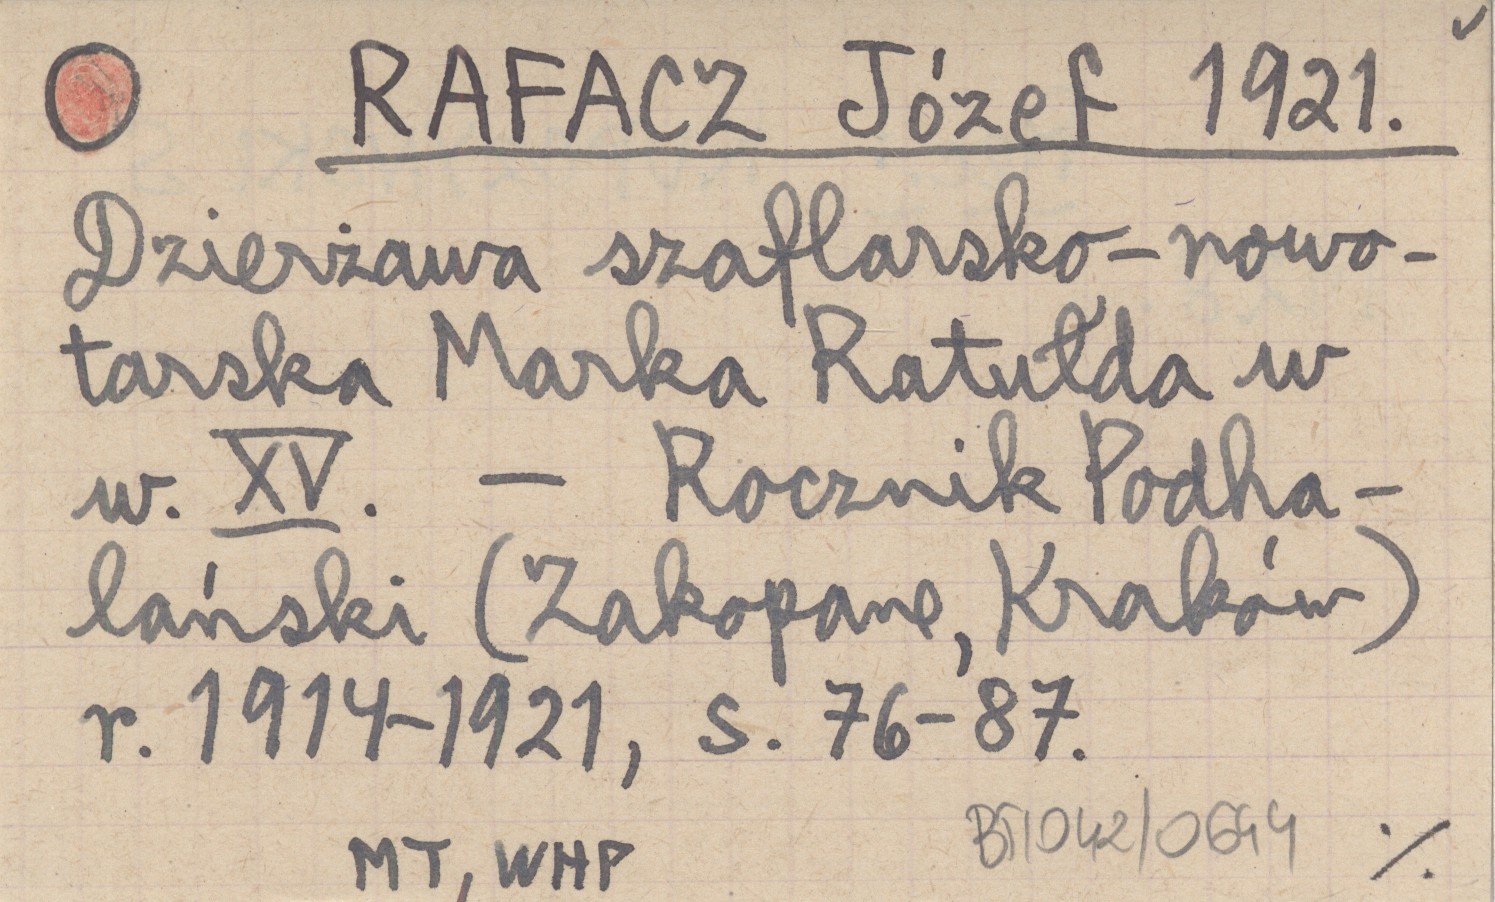 RAFACZ Józef 1921.
Dzierżawa szaflarsko-nowo-
tarska Marka Ratułda w
w. XV. — Rocznik Podha-
lański (Zakopane, Kraków)
r. 1914-1921, s. 76-87.
MT, WHP
BT/042/0644